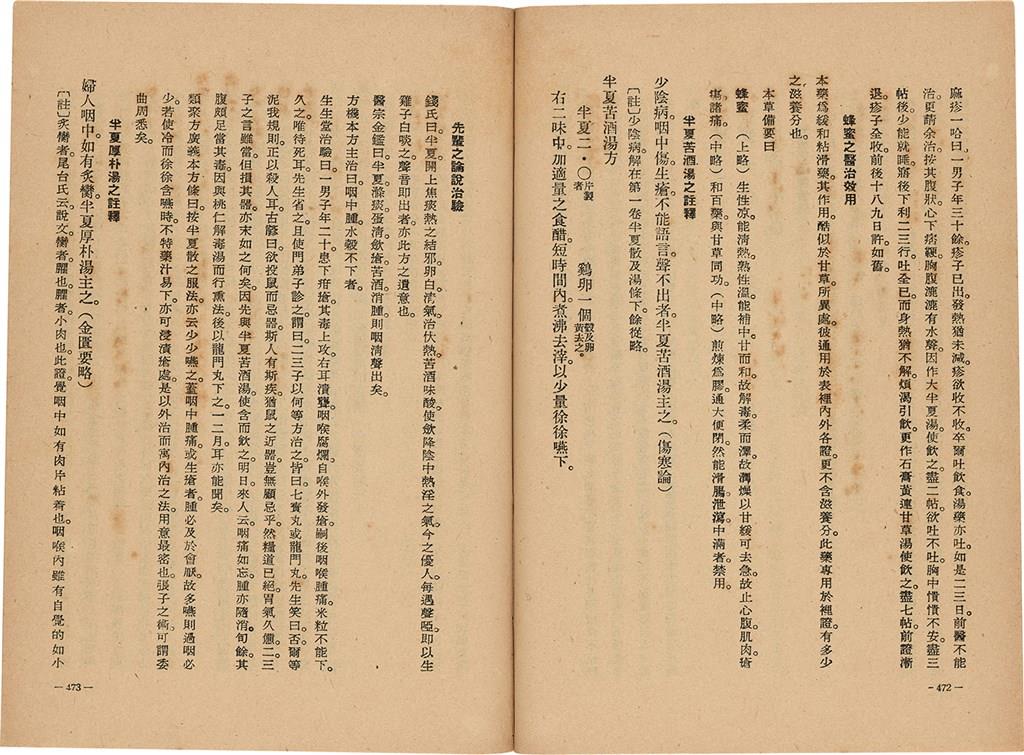 麻疹一哈曰一男子年三十餘疹子已出發熱猶未減疹欲收不收卒爾吐飲食湯藥亦吐如是二三日前醫不能
治更請余治按其腹狀心下痞鞕胸腹漉漉有水聲因作大半夏湯使飲之盡二帖欲吐不吐胸中憒憒不安盡三
帖後少能就睡寤後下利二三行吐全已而身熱猶不解煩渴引飲更作石膏黃連甘草湯使飲之盡七帖前證漸
退疹子全收前後十八九日許如舊。
蜂蜜之醫治效用
本藥爲緩和粘滑藥其作用酷似於甘草所異處彼通用於表裡內外各證更不含滋養分此藥專用於裡證有多少
之滋養分也。
本草備要曰
蜂蜜 （上略）生性凉能淸熱熟性溫能補中甘而和故解毒柔而濡故潤燥以甘緩可去急故止心腹肌肉瘡
瘍諸痛（中略）和百藥與甘草同功（中略）煎煉爲膠通大便閉然能滑腸泄瀉中滿者禁用。
半夏苦酒湯之註釋
少陰病咽中傷生瘡不能語言聲不出者半夏苦酒湯主之。（傷寒論）
〔註〕少陰病解在第一卷半夏散及湯條下餘從略。
半夏苦酒湯方
半夏二・〇片製者 鷄卵一個殼及卵黃去之。
右二味中加適量之食醋短時間內煮沸去滓以少量徐徐嚥下。
— 472 —
先輩之論說治驗
錢氏曰。半夏開上集痰熱之結邪卵白淸氣治伏熱苦酒味酸使斂降陰中熱淫之氣今之優人每遇聲啞即以生
雞子白啖之聲音即出者亦此方之遺意也。
醫宗金鑑曰半夏滌痰蛋淸斂瘡苦酒消腫則咽淸聲出矣。
方機本方主治曰咽中腫水穀不下者。
生生堂治驗曰一男子年二十患下疳瘡其毒上攻右耳潰聾咽喉腐爛自喉外發瘡嗣後咽喉腫痛米粒不能下。
久之唯待死耳先生省之且使門弟子診之謂曰二三子以何等方治之皆曰七寳丸或龍門丸。先生笑曰否爾等
泥我規則正以殺人耳古諺曰欲投鼠而忌器斯人有斯疾猶鼠之近器豈無顧忌乎然糧道已絕胃氣久憊二三
子之言雖當但損其器亦末如之何矣因先與半夏苦酒湯使含而飲之明日來人云咽痛如忘腫亦隨消旬餘其
腹頗足當其毒因與桃仁解毒湯而行熏法後以龍門丸下之一二月耳亦能聞矣。
類聚方廣義本方條曰按半夏散之服法亦云少少嚥之蓋咽中腫痛或生瘡者腫必及於會厭故多嚥則過咽必
少若使冷而徐徐含嚥時不特藥汁易下亦可浸漬瘡處是以外治而寓內治之法用意最密也張子之術可謂委
曲周悉矣。
半夏厚朴湯之註釋
婦人咽中如有炙臠半夏厚朴湯主之。（金匱要略）
〔註〕炙臠者尾台氏云說文臠者臞也臞者小肉也此證覺咽中如有肉片粘着也咽喉內雖有自覺的如小
— 473 —